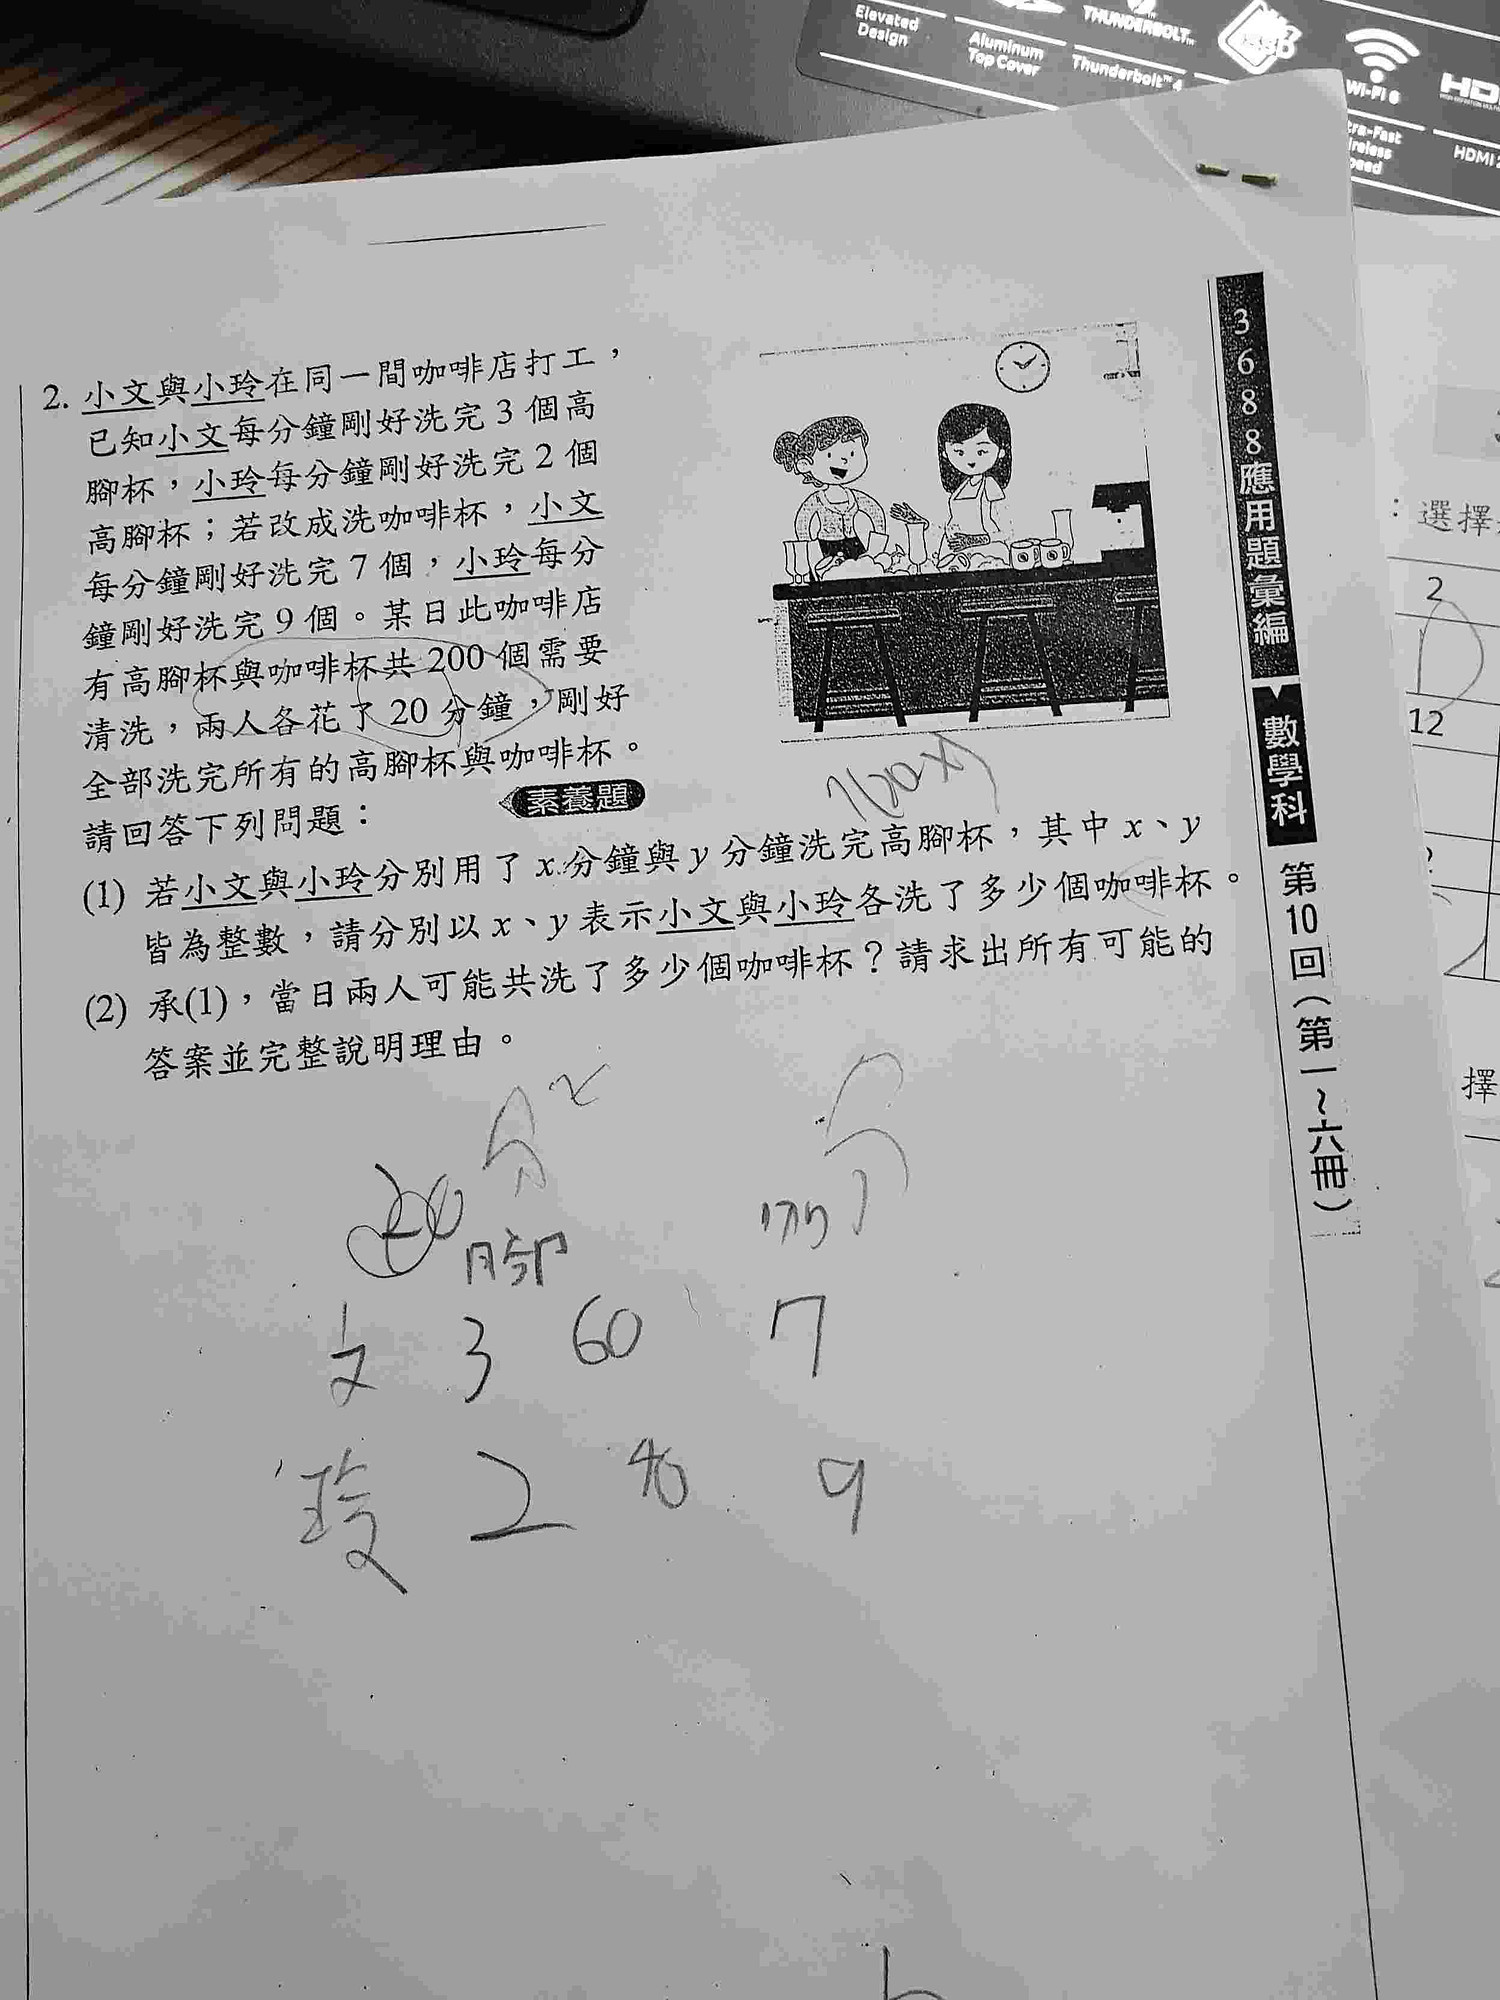 Elevated
Design
Aluminum
Top Cover
THUNDERBOLT™
Thunderbolt™ 4
Wi-Fi 6
HDMI
2. 小文與小玲在同一間咖啡店打工，
已知小文每分鐘剛好洗完 3 個高
腳杯，小玲每分鐘剛好洗完 2 個
高腳杯；若改成洗咖啡杯，小文
每分鐘剛好洗完 7 個，小玲每分
鐘剛好洗完 9 個。某日此咖啡店
有高腳杯與咖啡杯共 200 個需要
清洗，兩人各花了 20 分鐘，剛好
全部洗完所有的高腳杯與咖啡杯。
請回答下列問題：
素養題
(1) 若小文與小玲分別用了 x 分鐘與 y 分鐘洗完高腳杯，其中 x、y
皆為整數，請分別以 x、y 表示小文與小玲各洗了多少個咖啡杯。
(2) 承(1)，當日兩人可能共洗了多少個咖啡杯？請求出所有可能的
答案並完整說明理由。
分 x
分
腳
文 3 60 7
玲 2 40 9
3688應用題彙編
數學科
第10回（第一～六冊）
：選擇
2
12
擇